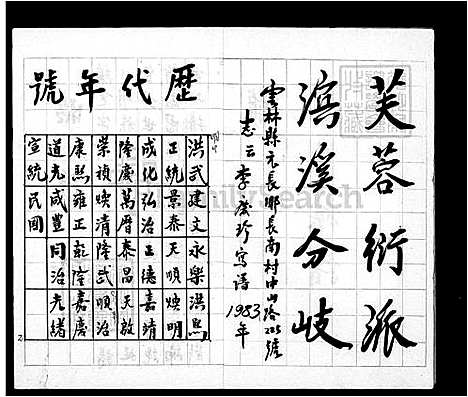 芙蓉衍派
濱溪分岐
雲林縣元長鄉長南村中山路225號
志云 李 珍寫譜 1983年
歷代年號
洪武 建文 永樂 洪熙
正統 景泰 天順 煥明
成化 弘治 正德 嘉靖
隆慶 萬曆 泰昌 天啟
崇禎 煥清 隆武 順治
康熙 雍正 乾隆 嘉慶
道光 咸豐 同治 光緒
宣統 民國
FamilySearch